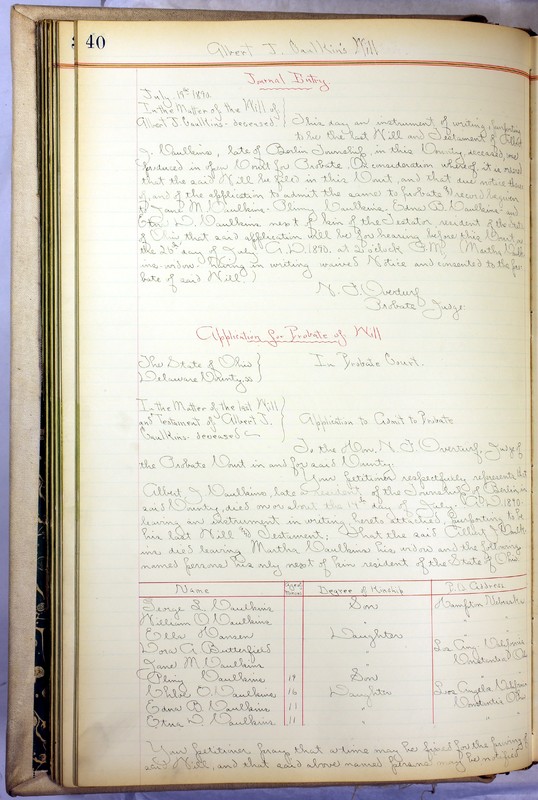 40
Albert J. Caulkins Will
Journal Entry
July 19th 1890
In the Matter of the Will of
Albert J. Caulkins. deceased
This day an instrument of writing, purporting
to be the last Will and Testament of Albert
J. Caulkins, late of Berlin Township, in this County, deceased, was
produced in open Court for Probate. On consideration whereof, it is ordered
that the said Will be filed in this Court, and that due notice thereof
and of the application to admit the same to probate & record be given
to Jane M. Caulkins. Pliny Caulkins. Edna B. Caulkins and
Etna D. Caulkins next of kin of the Testator resident of the State
of Ohio that said application will be for hearing before this Court on
the 26th day of July A.D. 1890. at 2 o'clock P.M.
widow having in writing waived Notice and consented to the pro
bate of said Will.)
N. F. Overturf
Probate Judge.
Application for Probate of Will
The State of Ohio
Delaware County. ss
In Probate Court.
In the Matter of the last Will
and Testament of Albert J.
Caulkins. deceased
Application to Admit to Probate
To the Hon. N. F. Overturf, Judge of
the Probate Court in and for said County:
Your petitioner respectfully represents that
Albert J. Caulkins, late a resident of the Township of Berlin in
said County, died on or about the 14th day of July A.D. 1890.
leaving an instrument in writing, hereto attached, purporting to be
his last Will & Testament; That the said Albert J. Caulk
ins died leaving Martha Caulkins his widow and the following
named persons his only next of kin resident of the State of Ohio
Name Degree of Kinship P.O. Address
George L. Caulkins Son Hampton Nebraska
William O. Caulkins " "
Ella Hansen Daughter "
Dora A. Butterfield " Los Ang California
Jane M. Caulkins "
Pliny Caulkins 19 Son "
Chloe O. Caulkins 16 Daughter Los Angeles California
Edna B. Caulkins 11 "
Etna D. Caulkins 11 " "
Your petitioner prays that a time may be fixed for the proving of
said Will, and that said above named persons may be notified